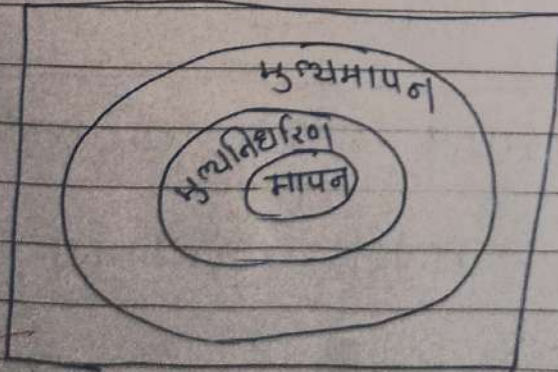 मुल्यमापन
मुल्यनिर्धारण
मापन